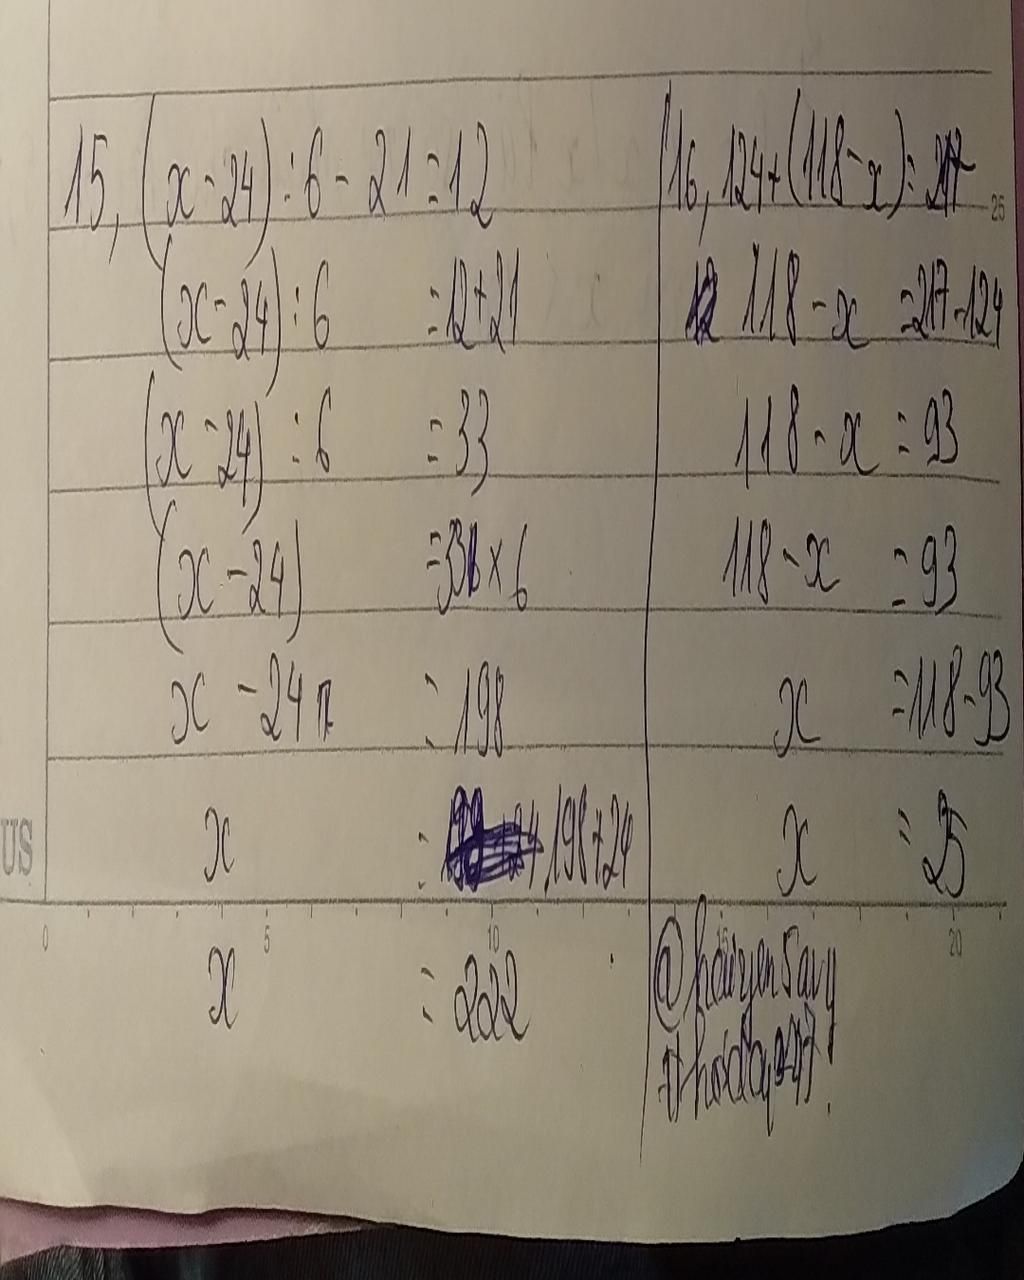 15, (x - 24) : 6 - 21 = 12
(x - 24) : 6 = 12 + 21
(x - 24) : 6 = 33
(x - 24) = 33 x 6
x - 24 = 198
x = 198 + 24
x = 222
16, 124 + (118 - x) = 217
118 - x = 217 - 124
118 - x = 93
118 - x = 93
x = 118 - 93
x = 25
25
US
0 5 10 15 20